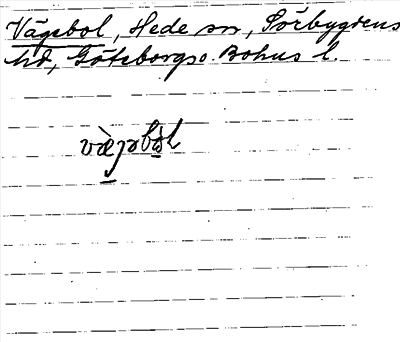 Vägsbol, Hede sn, Sörbygdens
hd, Göteborgs o. Bohus l.
væ̀jsbò̤l